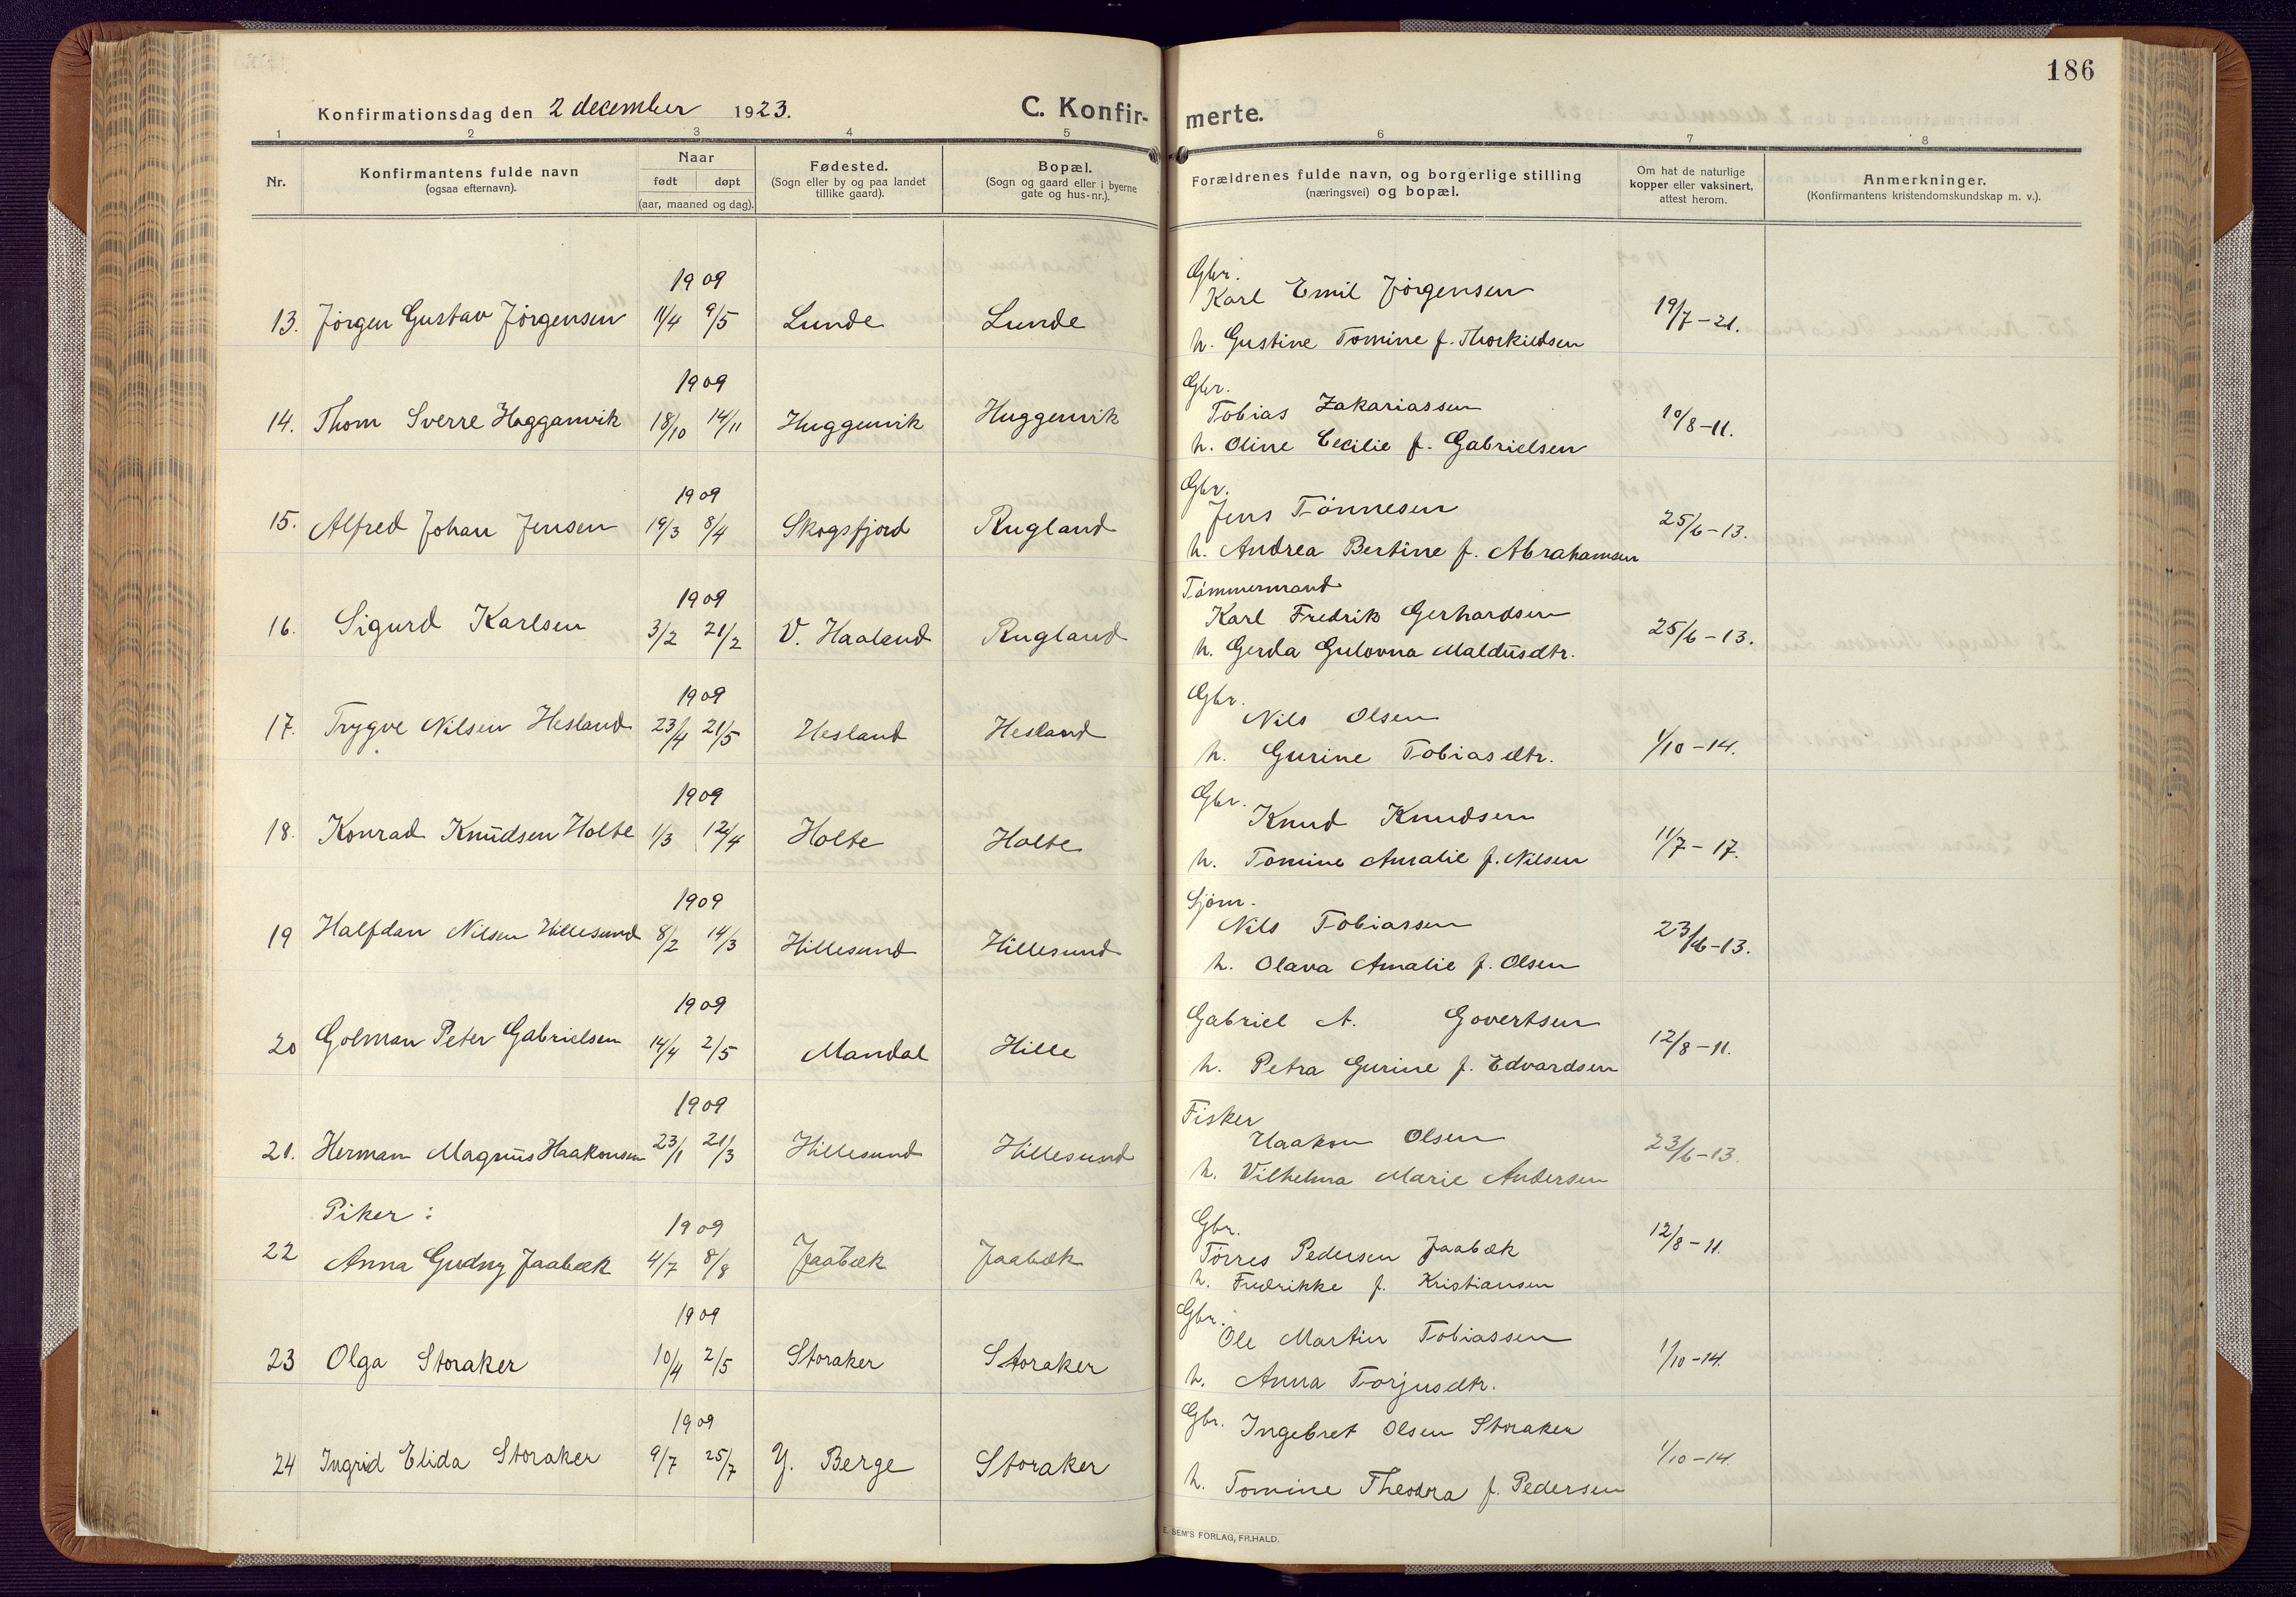 186
Konfirmationsdag den 2 december 1923.
C. Konfir-
merte.
1 2 3 4 5 6 7 8
Nr.
Konfirmantens fulde navn
(ogsaa efternavn).
Naar
født døpt
(aar, maaned og dag).
Fødested.
(Sogn eller by og paa landet
tillike gaard).
Bopæl.
(Sogn og gaard eller i byerne
gate og hus-nr.).
Forældrenes fulde navn, og borgerlige stilling
(næringsvei) og bopæl.
Om hat de naturlige
kopper eller vaksinert,
attest herom.
Anmerkninger.
(Konfirmantens kristendomskundskap m. v.).
1909
Gbr.
Karl Emil Jörgensen
13. Jörgen Gustav Jörgensen 11/4 9/5 Lunde Lunde 19/7-21.
h. Gustine Tomine f. Thorkildsen
1909
Gbr.
Tobias Zakariassen
14. Thom Sverre Hagganvik 18/10 14/11 Huggenvik Huggenvik 10/8-11.
h. Oline Cecilie f. Gabrielsen
1909
Gbr.
Jens Tönnesen
15. Alfred Johan Jensen 19/3 8/4 Skogsfjord Rugland 25/6-13.
h. Andrea Bertine f. Abrahamsen
1909
Tömmermand
Karl Fredrik Gerhardsen
16. Sigurd Karlsen 3/2 21/2 V. Haaland Rugland 25/6-13.
h. Gerda Gulovna Maldusdtr.
1909
Gbr.
Nils Olsen
17. Trygve Nilsen Hesland 23/4 21/5 Hesland Hesland 1/10-14.
h. Gurine Tobiasdtr.
1909
Gbr.
Knud Knudsen
18. Konrad Knudsen Holte 1/3 12/4 Holte Holte 11/7-17.
h. Tomine Amalie f. Nilsen
1909
Sjöm.
Nils Tobiassen
19 Halfdan Nilsen Hillesund 8/2 14/3 Hillesund Hillesund 23/6-13.
h. Olava Amalie f. Olsen
1909
Gabriel A. Govertsen
20 Golman Peter Gabrielsen 14/4 2/5 Mandal Hille 12/8-11.
h. Petra Gurine f. Edvardsen
1909
Fisker
Haakon Olsen
21. Herman Magnus Haakonsen 23/1 21/3 Hillesund Hillesund 23/6-13.
h. Vilhelma Marie Andersen
Piker:
1909
Gbr.
Törres Pedersen Jaabæk
22 Anna Gudny Jaabæk 4/7 8/8 Jaabæk Jaabæk 12/8-11.
h. Fredrikke f. Kristiansen
1909
Gbr.
Ole Martin Tobiassen
23 Olga Storaker 10/4 2/5 Storaker Storaker 1/10-14.
h. Anna Torjusdtr.
1909
Gbr. Ingebret Olsen Storaker
24 Ingrid Elida Storaker 9/7 25/7 Y. Berge Storaker 1/10-14.
h. Tomine Theodora f. Pedersen
E. SEM'S FORLAG, FR.HALD.